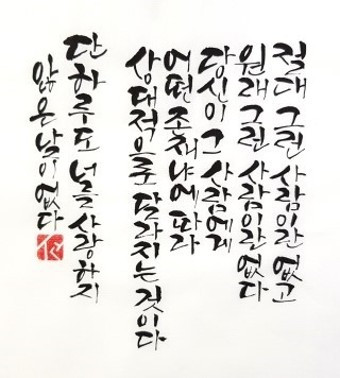 절대 그런 사람이란 없고
원래 그런 사람이란 없다
당신이 그 사람에게
어떤 존재냐에 따라
상대적으로 달라지는 것이다
단 하루도 널 사랑하지
않은 날이 없다